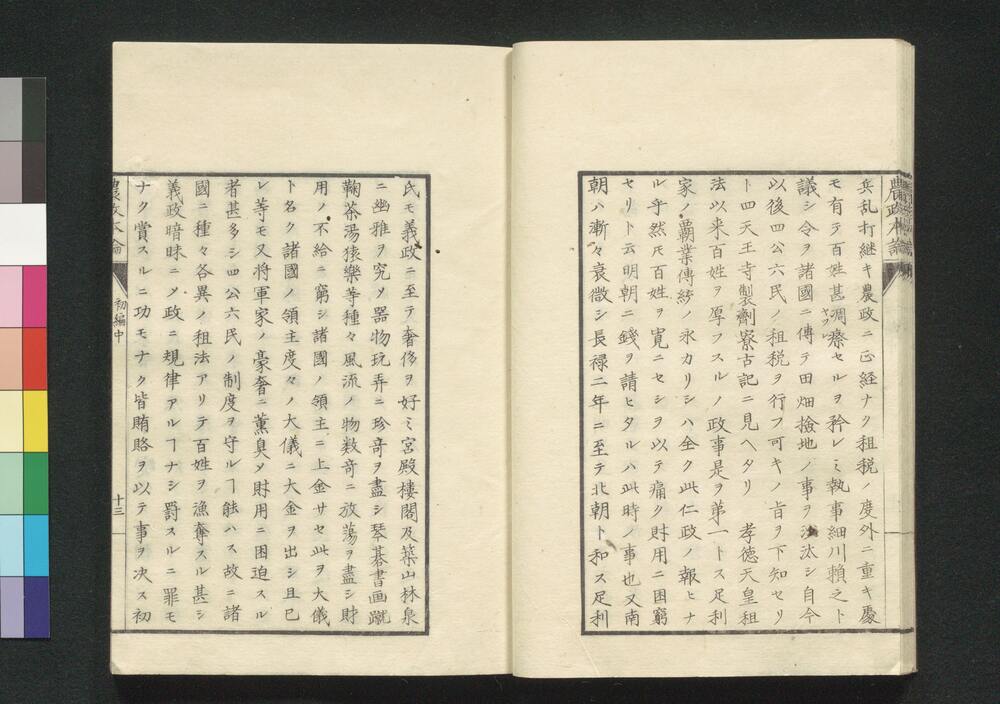 兵乱打継キ農政ニ正経ナク租税ノ度外ニ重キ處
モ有テ百姓甚凋瘵セルヲ矜レミ執事細川頼之ト
議シ令ヲ諸國ニ傳テ田畑撿地ノ事ヲ沙汰シ自今
以後四公六民ノ租税ヲ行フ可キノ旨ヲ下知セリ
ト四天王寺製劑寮古記ニ見ヘタリ 孝徳天皇租
法以来百姓ヲ厚フスルノ政事是ヲ苐一トス足利
家ノ覇業傳紾ノ永カリシハ全ク此仁政ノ報ヒナ
ル乎然モ百姓ヲ寛ニセシヲ以テ痛ク財用ニ困窮
セリト云明朝ニ錢ヲ請ヒタルハ此時ノ事也又南
朝ハ漸々衰微シ長禄二年ニ至テ北朝ト和ス足利
氏モ義政ニ至テ奢侈ヲ好ミ宮殿樓閣及築山林泉
ニ幽雅ヲ究メ器物玩弄ニ珍竒ヲ盡シ琴碁書画蹴
鞠茶湯猿樂等種々風流ノ物数竒ニ放蕩ヲ盡シ財
用ノ不給ニ窮シ諸國ノ領主ニ上金サセ此ヲ大儀
ト名ク諸國ノ領主度々ノ大儀ニ大金ヲ出シ且已
レ等モ又将軍家ノ豪奢ニ薫臭メ財用ニ困迫スル
者甚多シ四公六民ノ制度ヲ守ルヿ能ハス故ニ諸
國ニ種々各異ノ租法アリテ百姓ヲ漁奪スル甚シ
義政暗昧ニメ政ニ規律アルヿナシ罰スルニ罪モ
ナク賞スルニ功モナク皆賄賂ヲ以テ事ヲ决ス初
農政本論
初編中
十三